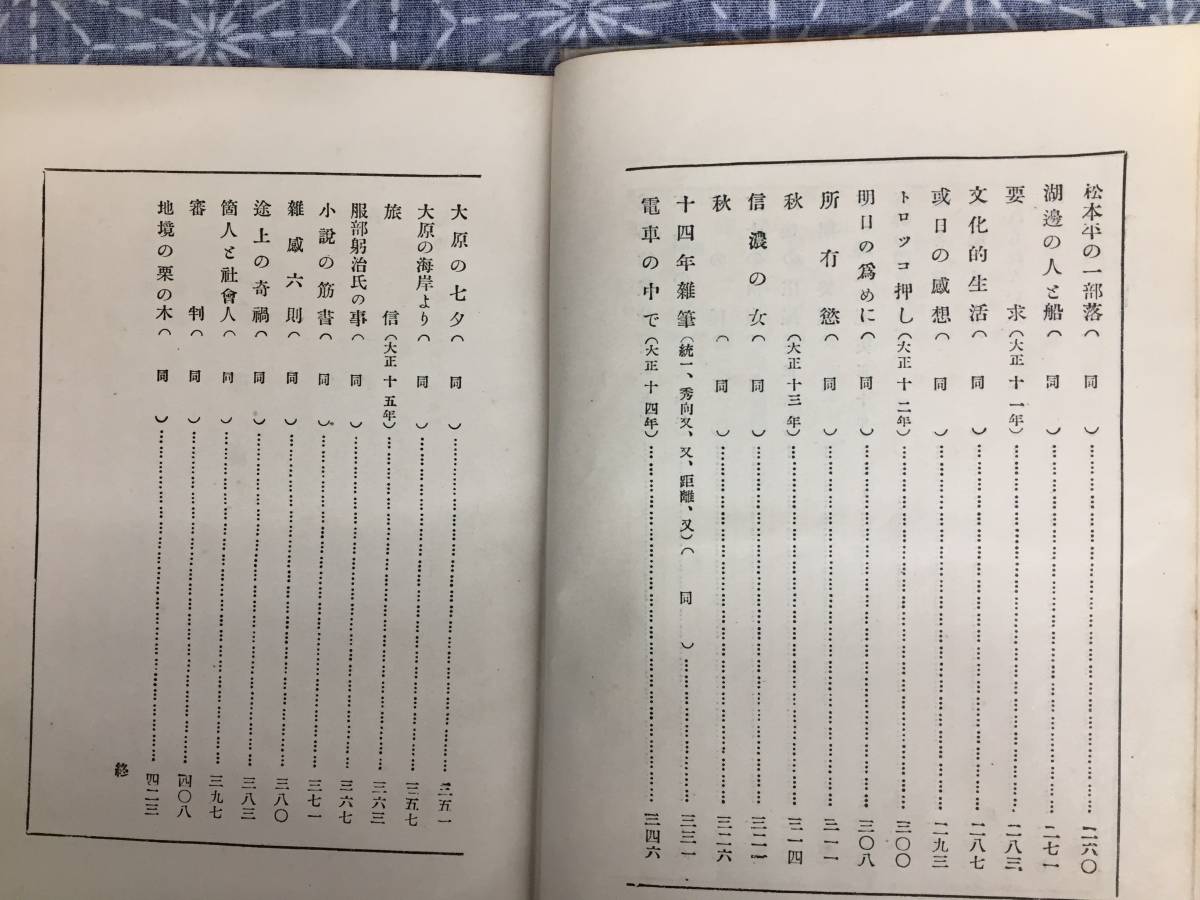 松本平の一部落(同)………二六〇
湖邊の人と船(同)………二七一
要求(大正十一年)………二八三
文化的生活(同)………二八七
或日の感想(同)………二九三
トロッコ押し(大正十二年)………三〇〇
明日の爲めに(同)………三〇八
所有慾(同)………三一一
秋(大正十三年)………三一四
信濃の女(同)………三二一
秋(同)………三二六
十四年雜筆(統一、秀向又、又、距離、又)(同)………三三一
電車の中で(大正十四年)………三四六
大原の七夕(同)………三五一
大原の海岸より(同)………三五七
旅信(大正十五年)………三六三
服部躬治氏の事(同)………三六七
小說の筋書(同)………三七一
雜感六則(同)………三八〇
途上の奇禍(同)………三八三
箇人と社會人(同)………三九七
審判(同)………四〇八
地境の栗の木(同)………四二三
終